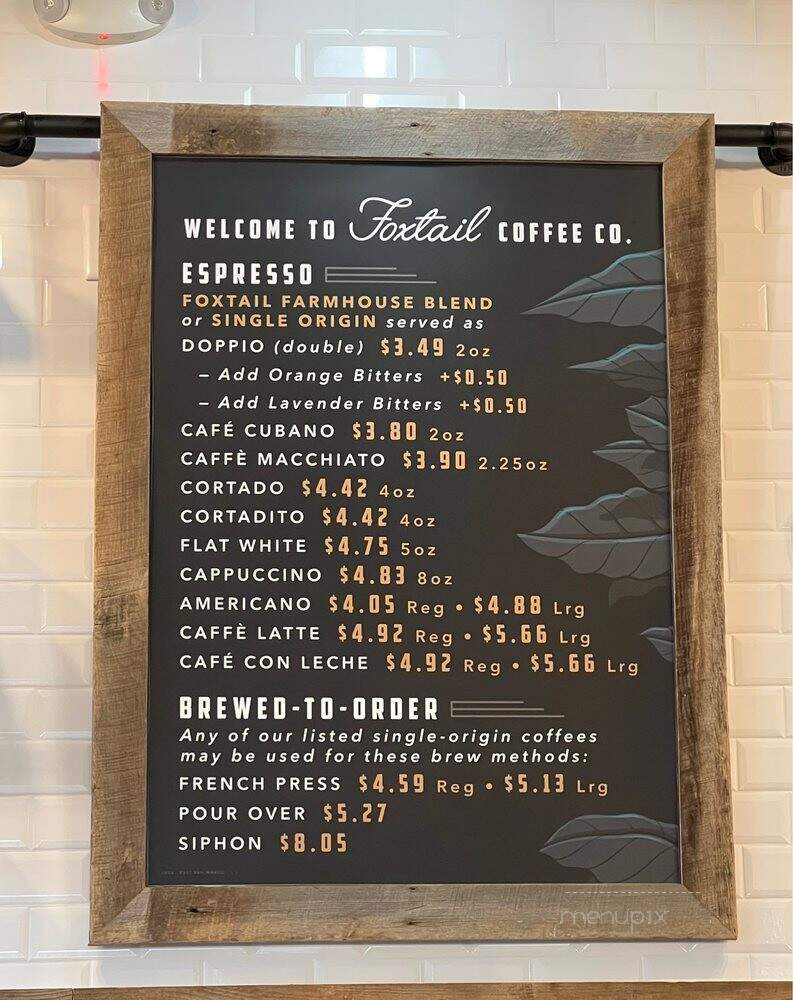 WELCOME TO Foxtail COFFEE CO.
ESPRESSO
FOXTAIL FARMHOUSE BLEND
or SINGLE ORIGIN served as
DOPPIO (double) $3.49 2oz
– Add Orange Bitters +$0.50
– Add Lavender Bitters +$0.50
CAFÉ CUBANO $3.80 2oz
CAFFÈ MACCHIATO $3.90 2.25oz
CORTADO $4.42 4oz
CORTADITO $4.42 4oz
FLAT WHITE $4.75 5oz
CAPPUCCINO $4.83 8oz
AMERICANO $4.05 Reg • $4.88 Lrg
CAFFÈ LATTE $4.92 Reg • $5.66 Lrg
CAFÉ CON LECHE $4.92 Reg • $5.66 Lrg
BREWED-TO-ORDER
Any of our listed single-origin coffees
may be used for these brew methods:
FRENCH PRESS $4.59 Reg • $5.13 Lrg
POUR OVER $5.27
SIPHON $8.05
menupix